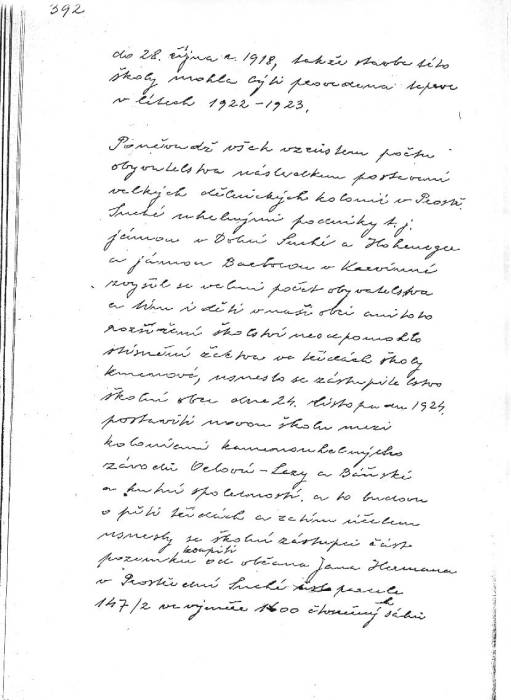 392
do 28. října r. 1918, takže stavba této
školy mohla býti provedena teprve
v létech 1922-1923.
Poněvadž však vzrůstem počtu
obyvatelstva následkem postavení
velkých dělnických kolonií v Prostř.
Suché uhelnými podniky t. j.
jámou v Dolní Suché a Hohenegger
a jámou Barborou v Karvinné
zvýšil se velmi počet obyvatelstva
a tím i dětí v naší obci ani toto
rozšíření školství neodpomohlo
stísnění žactva ve třídách školy
kmenové, usneslo se zástupitelstvo
školní obce dne 24. listopadu 1924
postaviti novou školu mezi
koloniemi kamenouhelného
závodu Orlová-Lazy a Báňské
a hutní společnosti a to budovu
o pěti třídách a za tím účelem
usnesli se školní zástupci část
pozemku koupiti od občana Jana Hermana
v Prostřední Suché parcele
147/2 ve výměře 1600 čtverečných sáhů